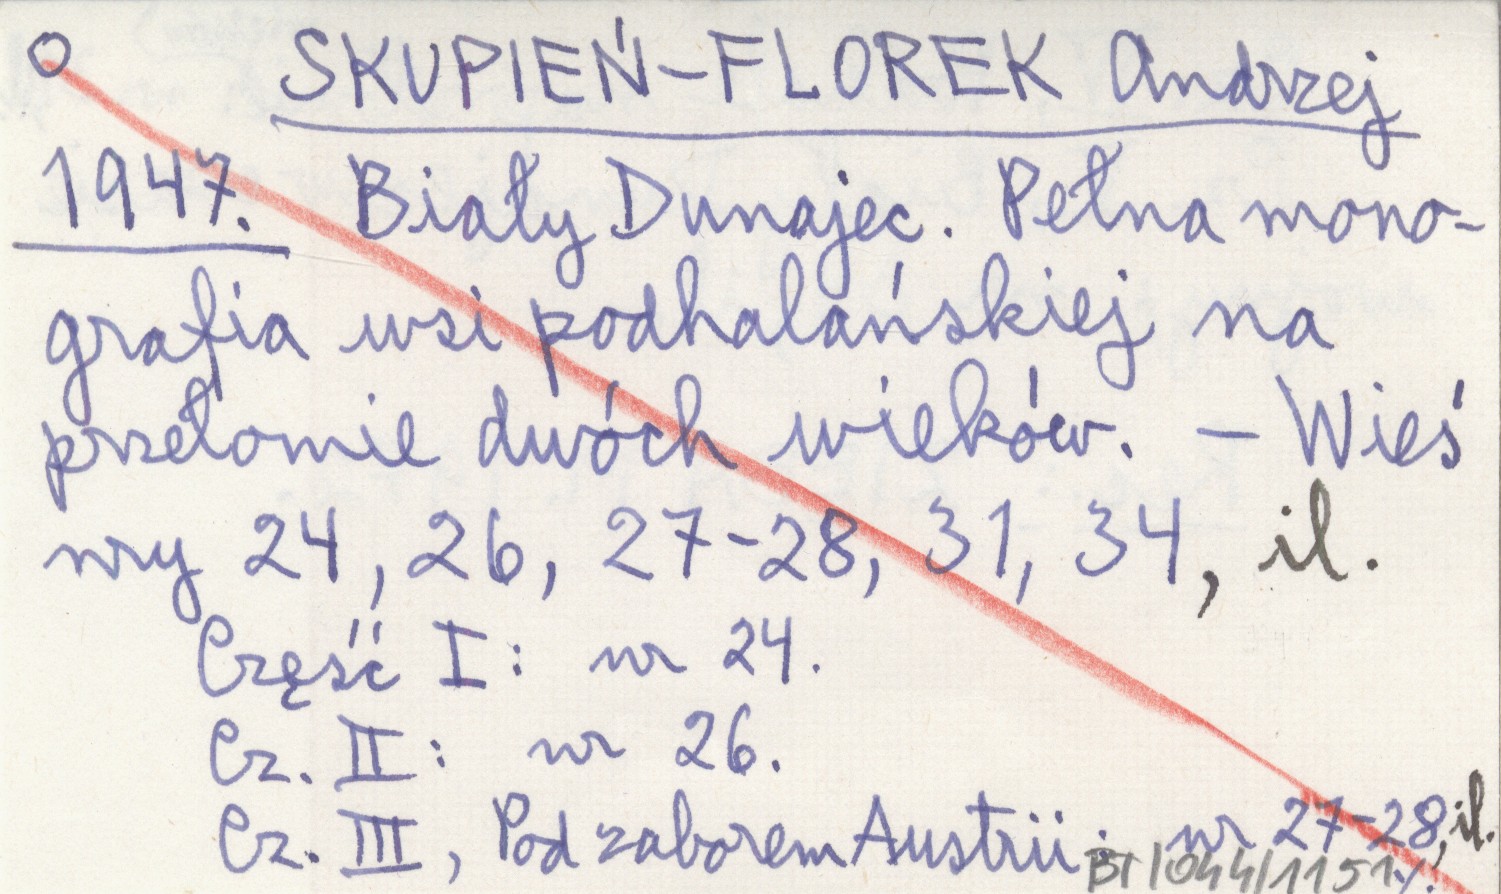 SKUPIEŃ-FLOREK Andrzej
1947. Biały Dunajec. Pełna mono-
grafia wsi podhalańskiej na
przełomie dwóch wieków. - Wieś
nry 24, 26, 27-28, 31, 34, il.
Część I: nr 24.
Cz. II: nr 26.
Cz. III, Pod zaborem Austrii: nr 27-28, il.
BT/044/1151